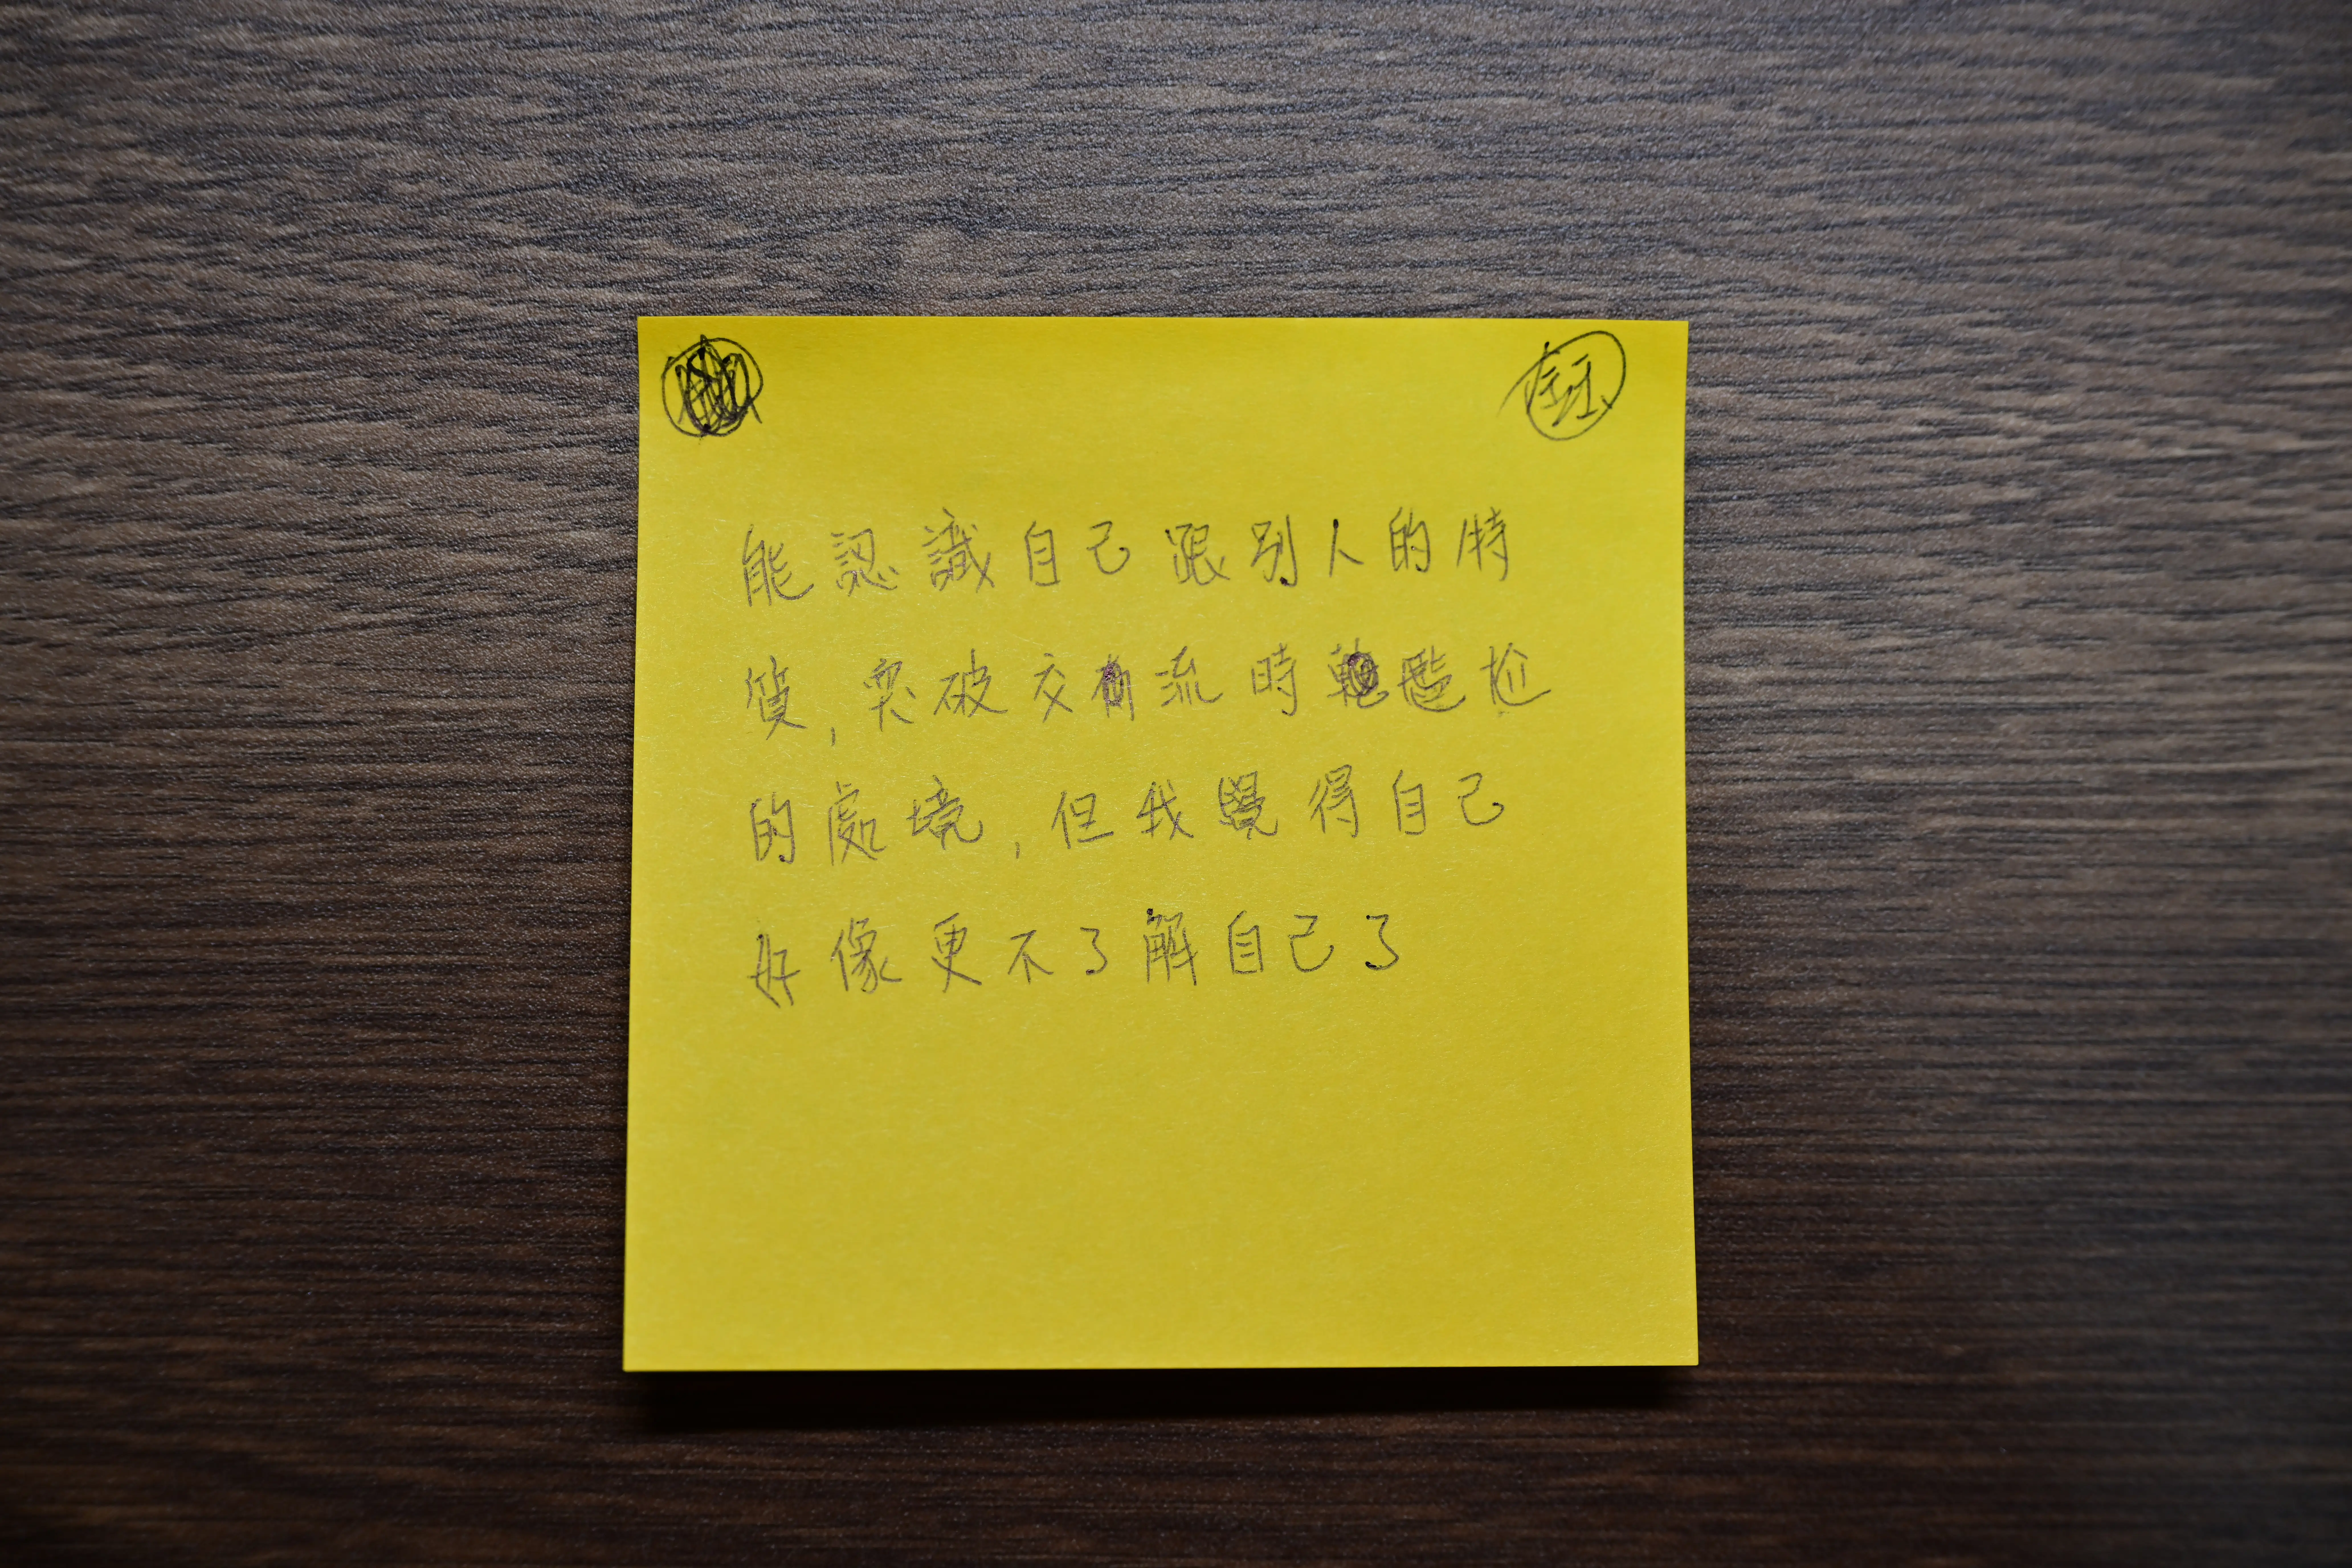 能認識自己跟別人的特
質,突破交流時尷尬
的處境,但我覺得自己
好像更不了解自己了